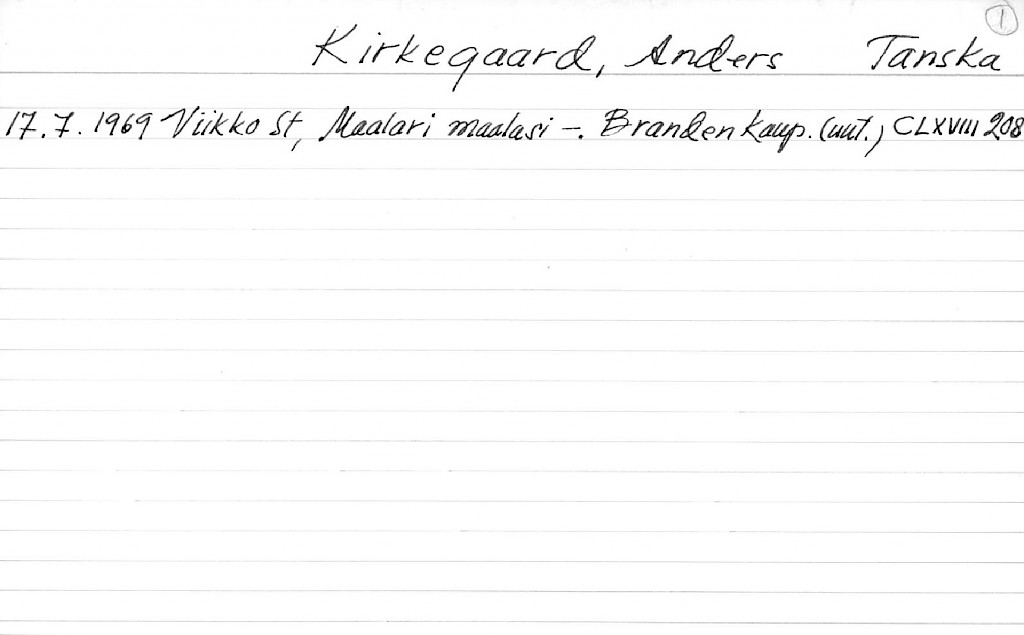 1
Kirkegaard, Anders Tanska
17.7.1969 Viikko St, Maalari maalasi –. Branden kaup. (uut.) CLXVIII 208